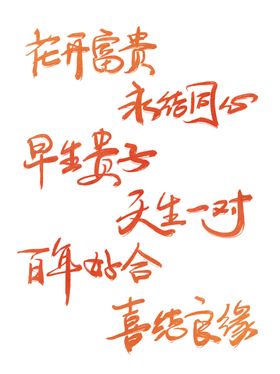 花开富贵
永结同心
早生贵子
天生一对
百年好合
喜结良缘